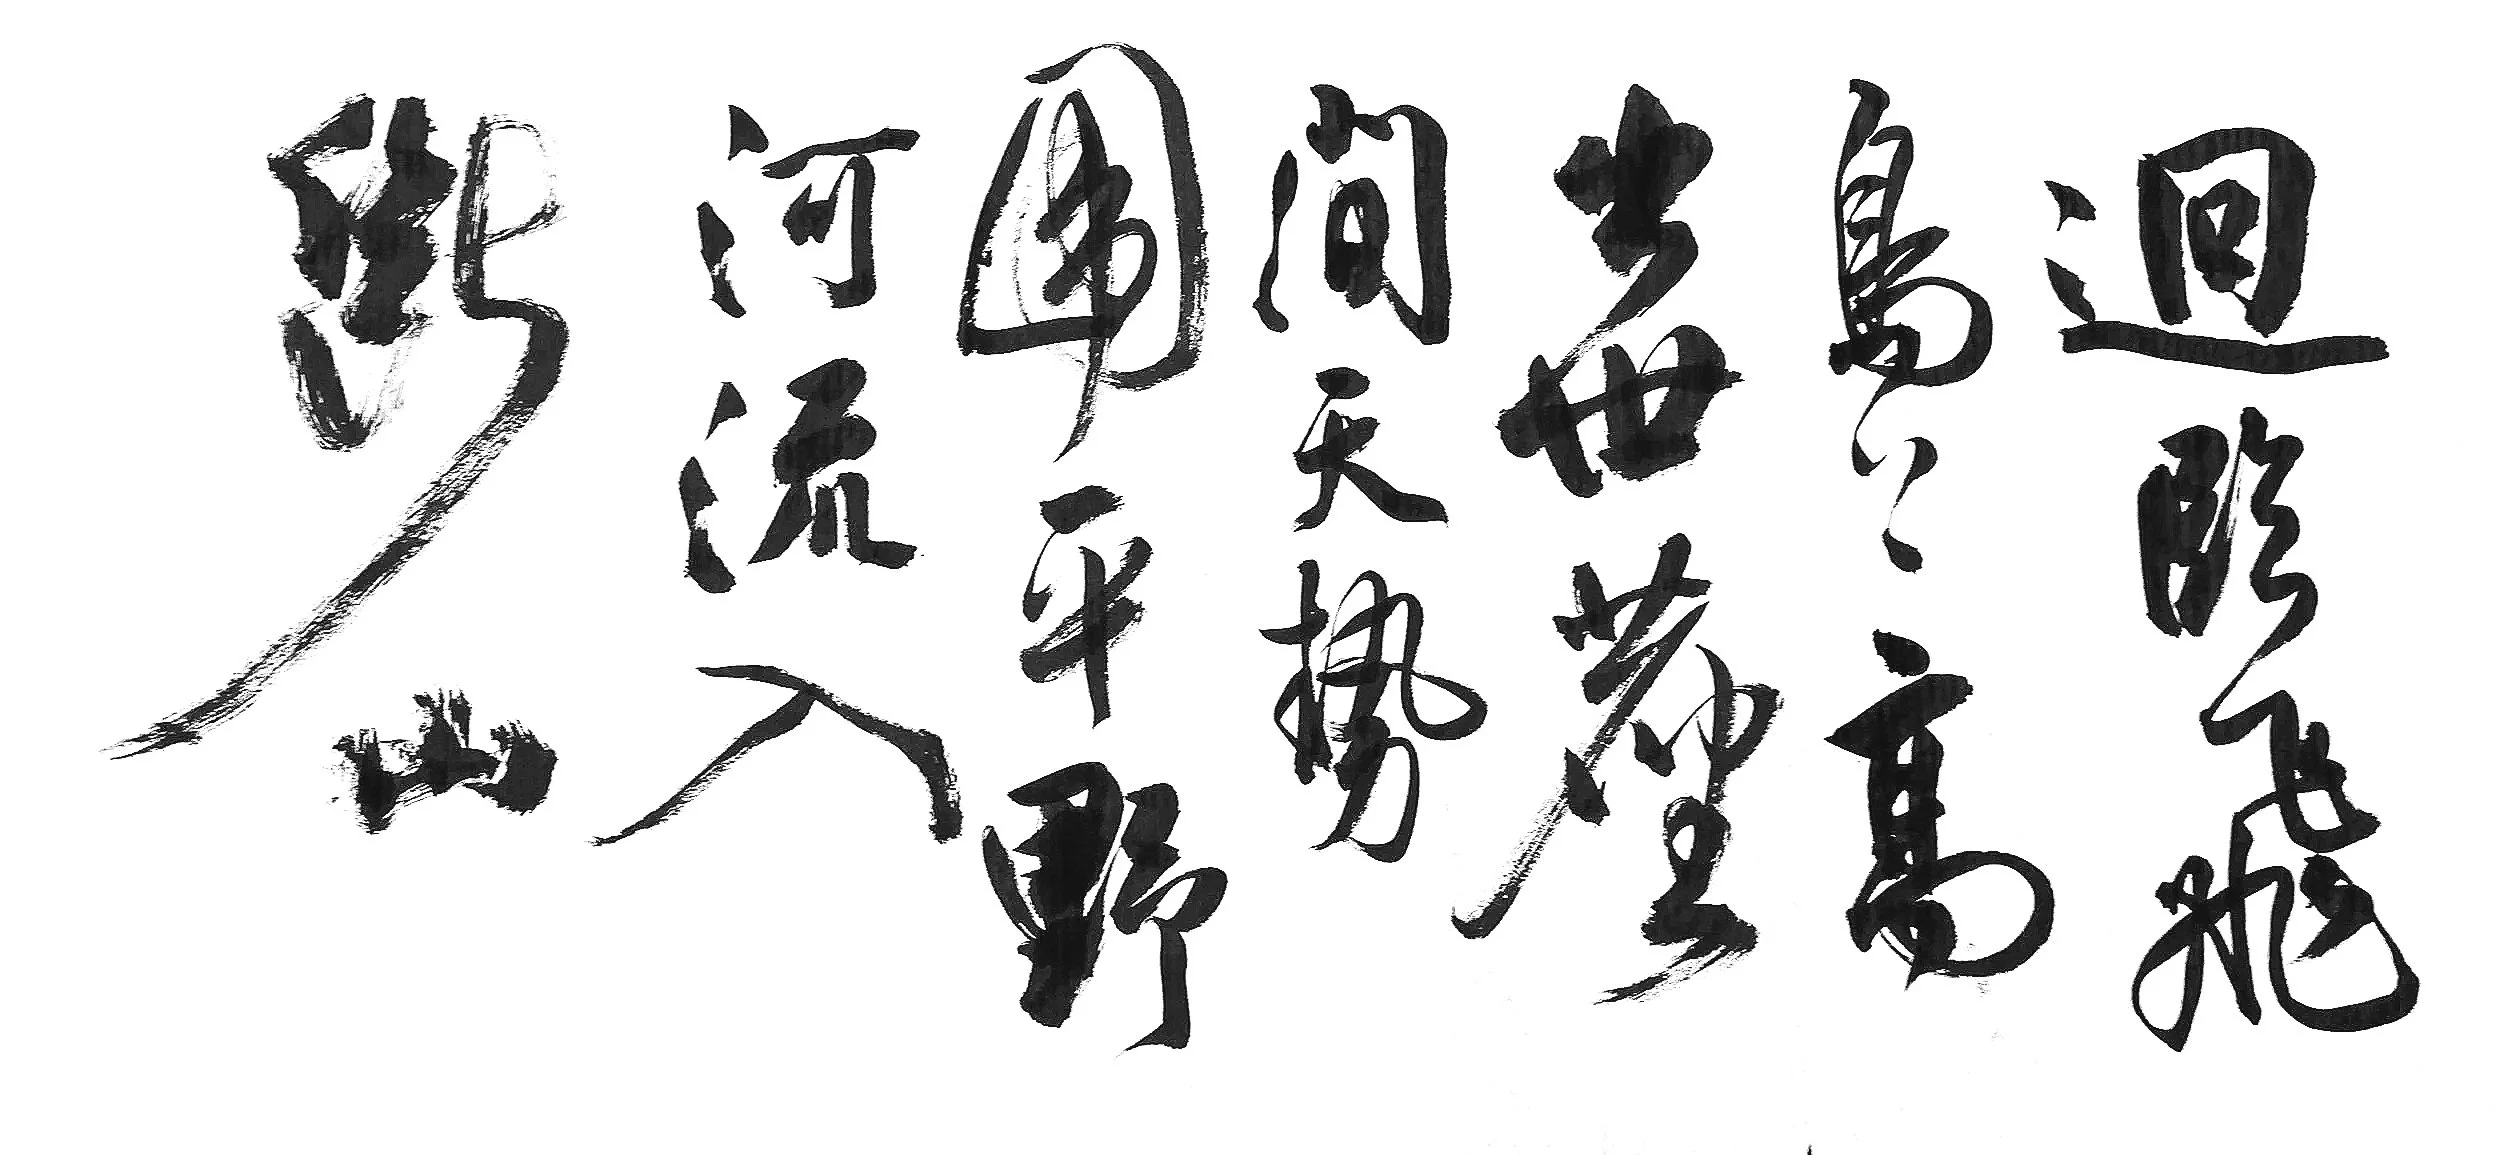 迴臨飛
鳥上高
出世塵
間天勢
圍平野
河流入
斷山